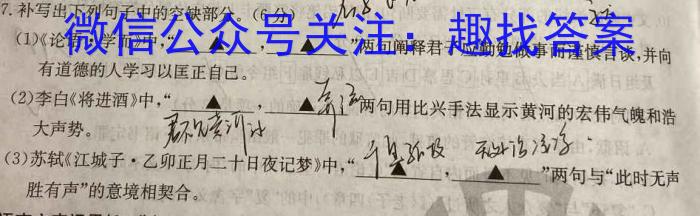 7.补写出下列句子中的空缺部分。(6分)
微信公众号关注：趣找答案
(1)《论语·学而》中,“▲,▲”两句阐释君子应勤勉做事而谨慎言谈,并向
有道德的人学习以匡正自己。
(2)李白《将进酒》中,“▲,▲”两句用比兴手法显示黄河的宏伟气魄和浩
大声势。
君不见黄河之
(3)苏轼《江城子·乙卯正月二十日夜记梦》中,“千里孤坟,▲”两句与“此时无声
胜有声”的意境相契合。